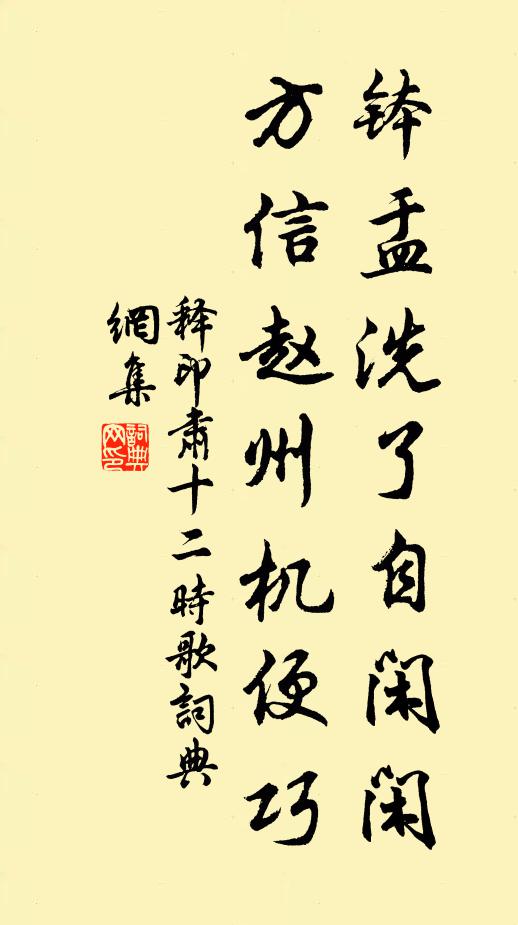 钵盂洗了自闲闲
方信赵州机便巧
释印肃十二時歌詞典
網集
詞典
网印